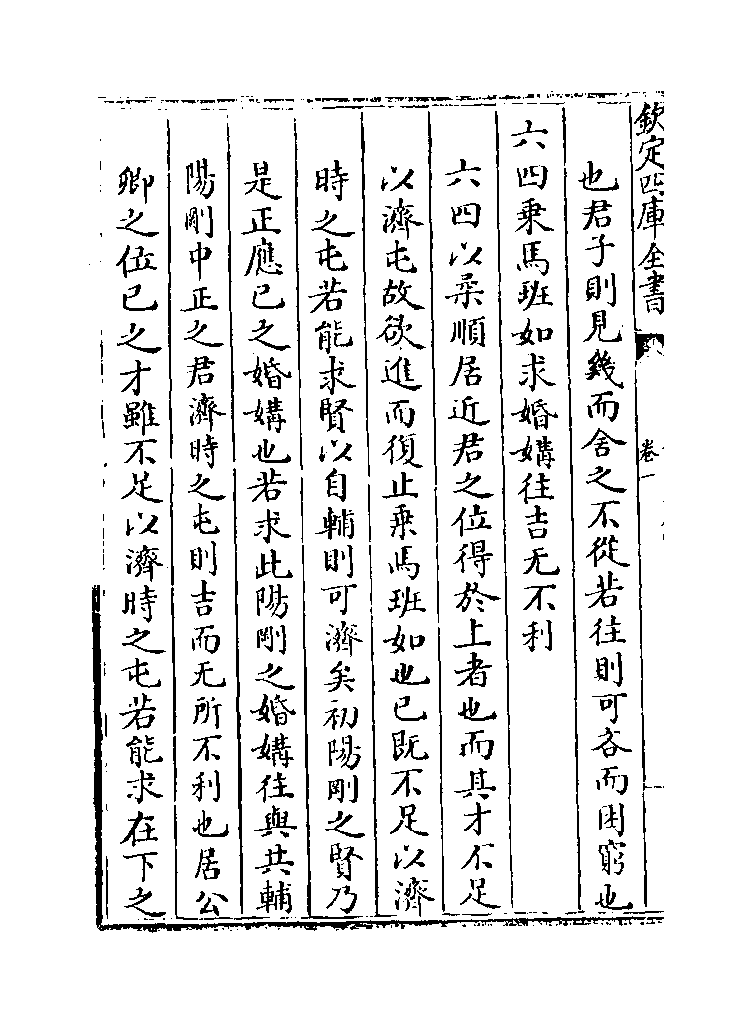 欽定四庫全書
卷一
也君子則見幾而舍之不從若往則可吝而困窮也
六四乘馬班如求婚媾往吉无不利
六四以柔順居近君之位得於上者也而其才不足
以濟屯故欲進而復止乘馬班如也已既不足以濟
時之屯若能求賢以自輔則可濟矣初陽剛之賢乃
是正應已之婚媾也若求此陽剛之婚媾往與共輔
陽剛中正之君濟時之屯則吉而无所不利也居公
卿之位已之才雖不足以濟時之屯若能求在下之